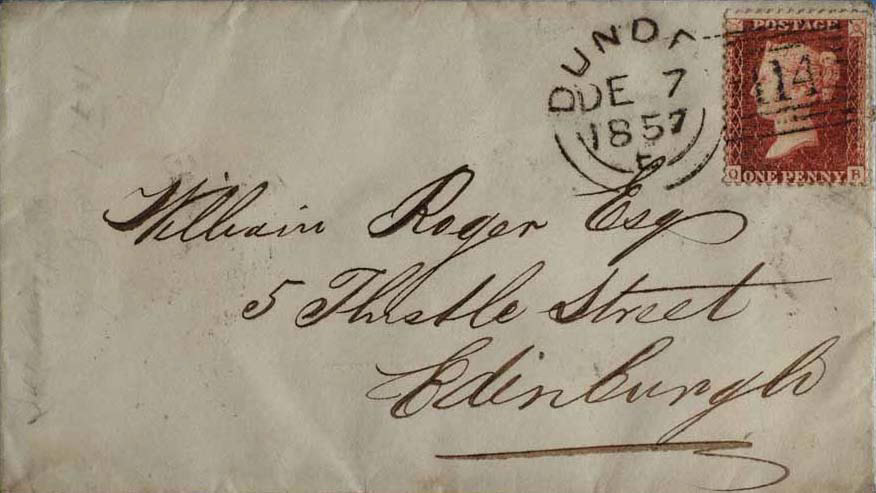 POSTAGE
DUND
DE 7
1857
114
ONE PENNY
William Roger Esq
5 Thistle Street
Edinburgh